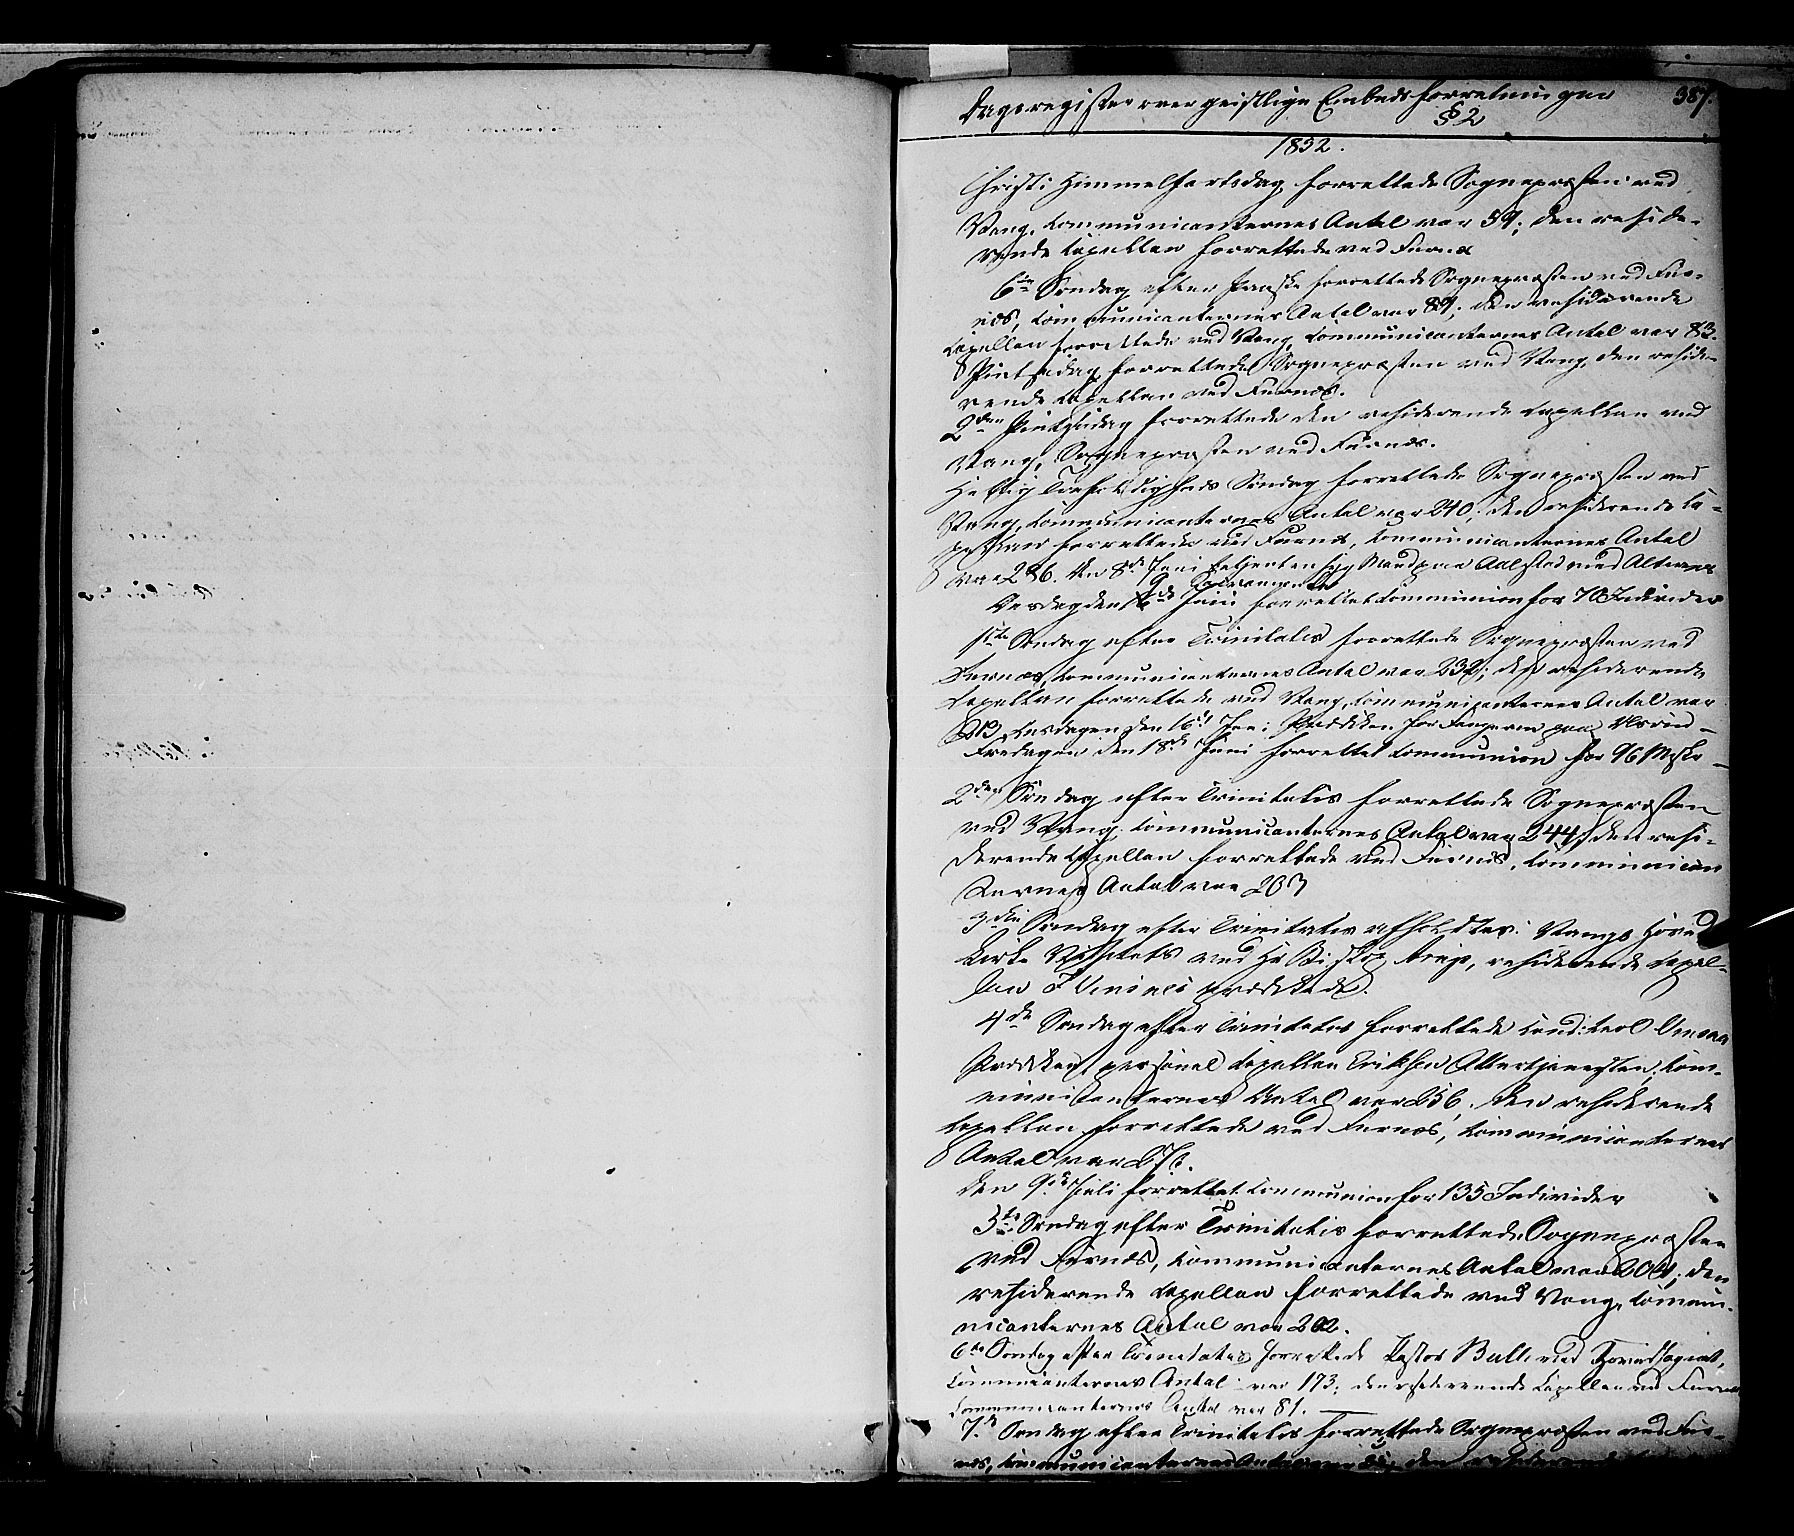 Dagsregister over geistlige Embedsforretninger 387.
§ 2
1832.
Christi Himmelfartsdag forrettede Sognepræsten ved
Vang, Communicanternes Antal var 59; den reside-
rende Capellan forrettede ved Furnæs
6te Søndag efter Paaske forrettede Sognepræsten ved Fur-
næs, Communicanternes Antal var 89; den residerende
Capellan forrettede ved Vang, Communicanternes Antal var 83.
Pintsedag forrettede Sognepræsten ved Vang, den reside-
rende Capellan ved Furnæs.
2den Pintsedag forrettede den residerende Capellan ved
Vang, Sognepræsten ved Furnæs.
Hellig Trefoldigheds Søndag forrettede Sognepræsten ved
Vang, Communicanternes Antal var 240; den residerende Ca-
pellan forrettede ved Furnæs, Communicanternes Antal
var 286. Den 8de Juni betjent en syg Mand paa Aalstad med Alterens
Sacramente
Løsdag den 9de Juni forrettet Communion for 70 Individer
1ste Søndag efter Trinitatis forrettede Sognepræsten ved
Furnæs, Communicanternes Antal var 232; den residerende
Capellan forrettede ved Vang, Communicanternes Antal var
213. den 16de Præddiken for Fangerne paa
Fredagen den 18de Juni forrettet Communion for 96
2den Søndag efter Trinitatis forrettede Sognepræsten
ved Vang, Communicanternes Antal var 244; den resi-
derende Capellan forrettede ved Furnæs, Communican
ternes Antal var 207
3die Søndag efter Trinitatis afholdtes i Vangs Hoved
Kirke Visitats ved Hr Biskop Arup, residerende Capel-
lan prædikede.
4de Søndag efter Trinitatis forrettede Cand: theol
Præddiken, personel Capellan Eriksen Altertjenesten; Com-
municanternes Antal var 256. den residerende
Capellan forrettede ved Furnæs, Communicanternes
Antal var
Den 9de Juli forrettet Communion for 135 Individer
5te Søndag efter Trinitatis forrettede Sognepræsten
ved Furnæs, Communicanternes Antal var 204; den
residerende Capellan forrettede ved Vang, Commu-
nicanternes Antal var 202.
6te Søndag efter Trinitatis forrettede Pastor Bull ved Hovedsognet,
Communicanternes Antal var 173; den residerende Capellan ved Furnæs
Communicanternes Antal var 81.
7de Søndag efter Trinitatis forrettede Sognepræsten ved Fur-
næs, Communicanternes Antal var den residerende